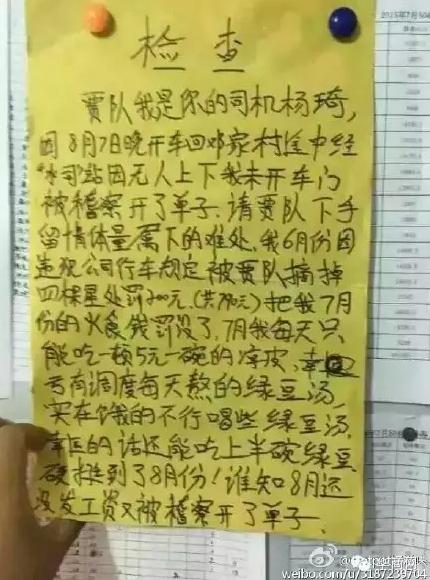 检查
贾队我是你的司机杨琦,
因8月7日晚开车回邓家村途中经
"水司"站因无人上下我未开车门
被稽察开了单子.请贾队下手
留情体量属下的难处.我6月份因
违犯公司行车规定被贾队摘掉
四棵星处罚200元.(共780元)把我7月
份的伙食钱罚没了.7月我每天只
能吃一顿5元一碗的凉皮、幸
亏有调度每天熬的绿豆汤,
实在饿的不行喝些绿豆汤.
幸匠的话还能吃上半碗绿豆,
硬挨到了8月份!谁知8月还
没发工资又被稽察开了单子.
2015年7月
weibo.com/u/3187239704